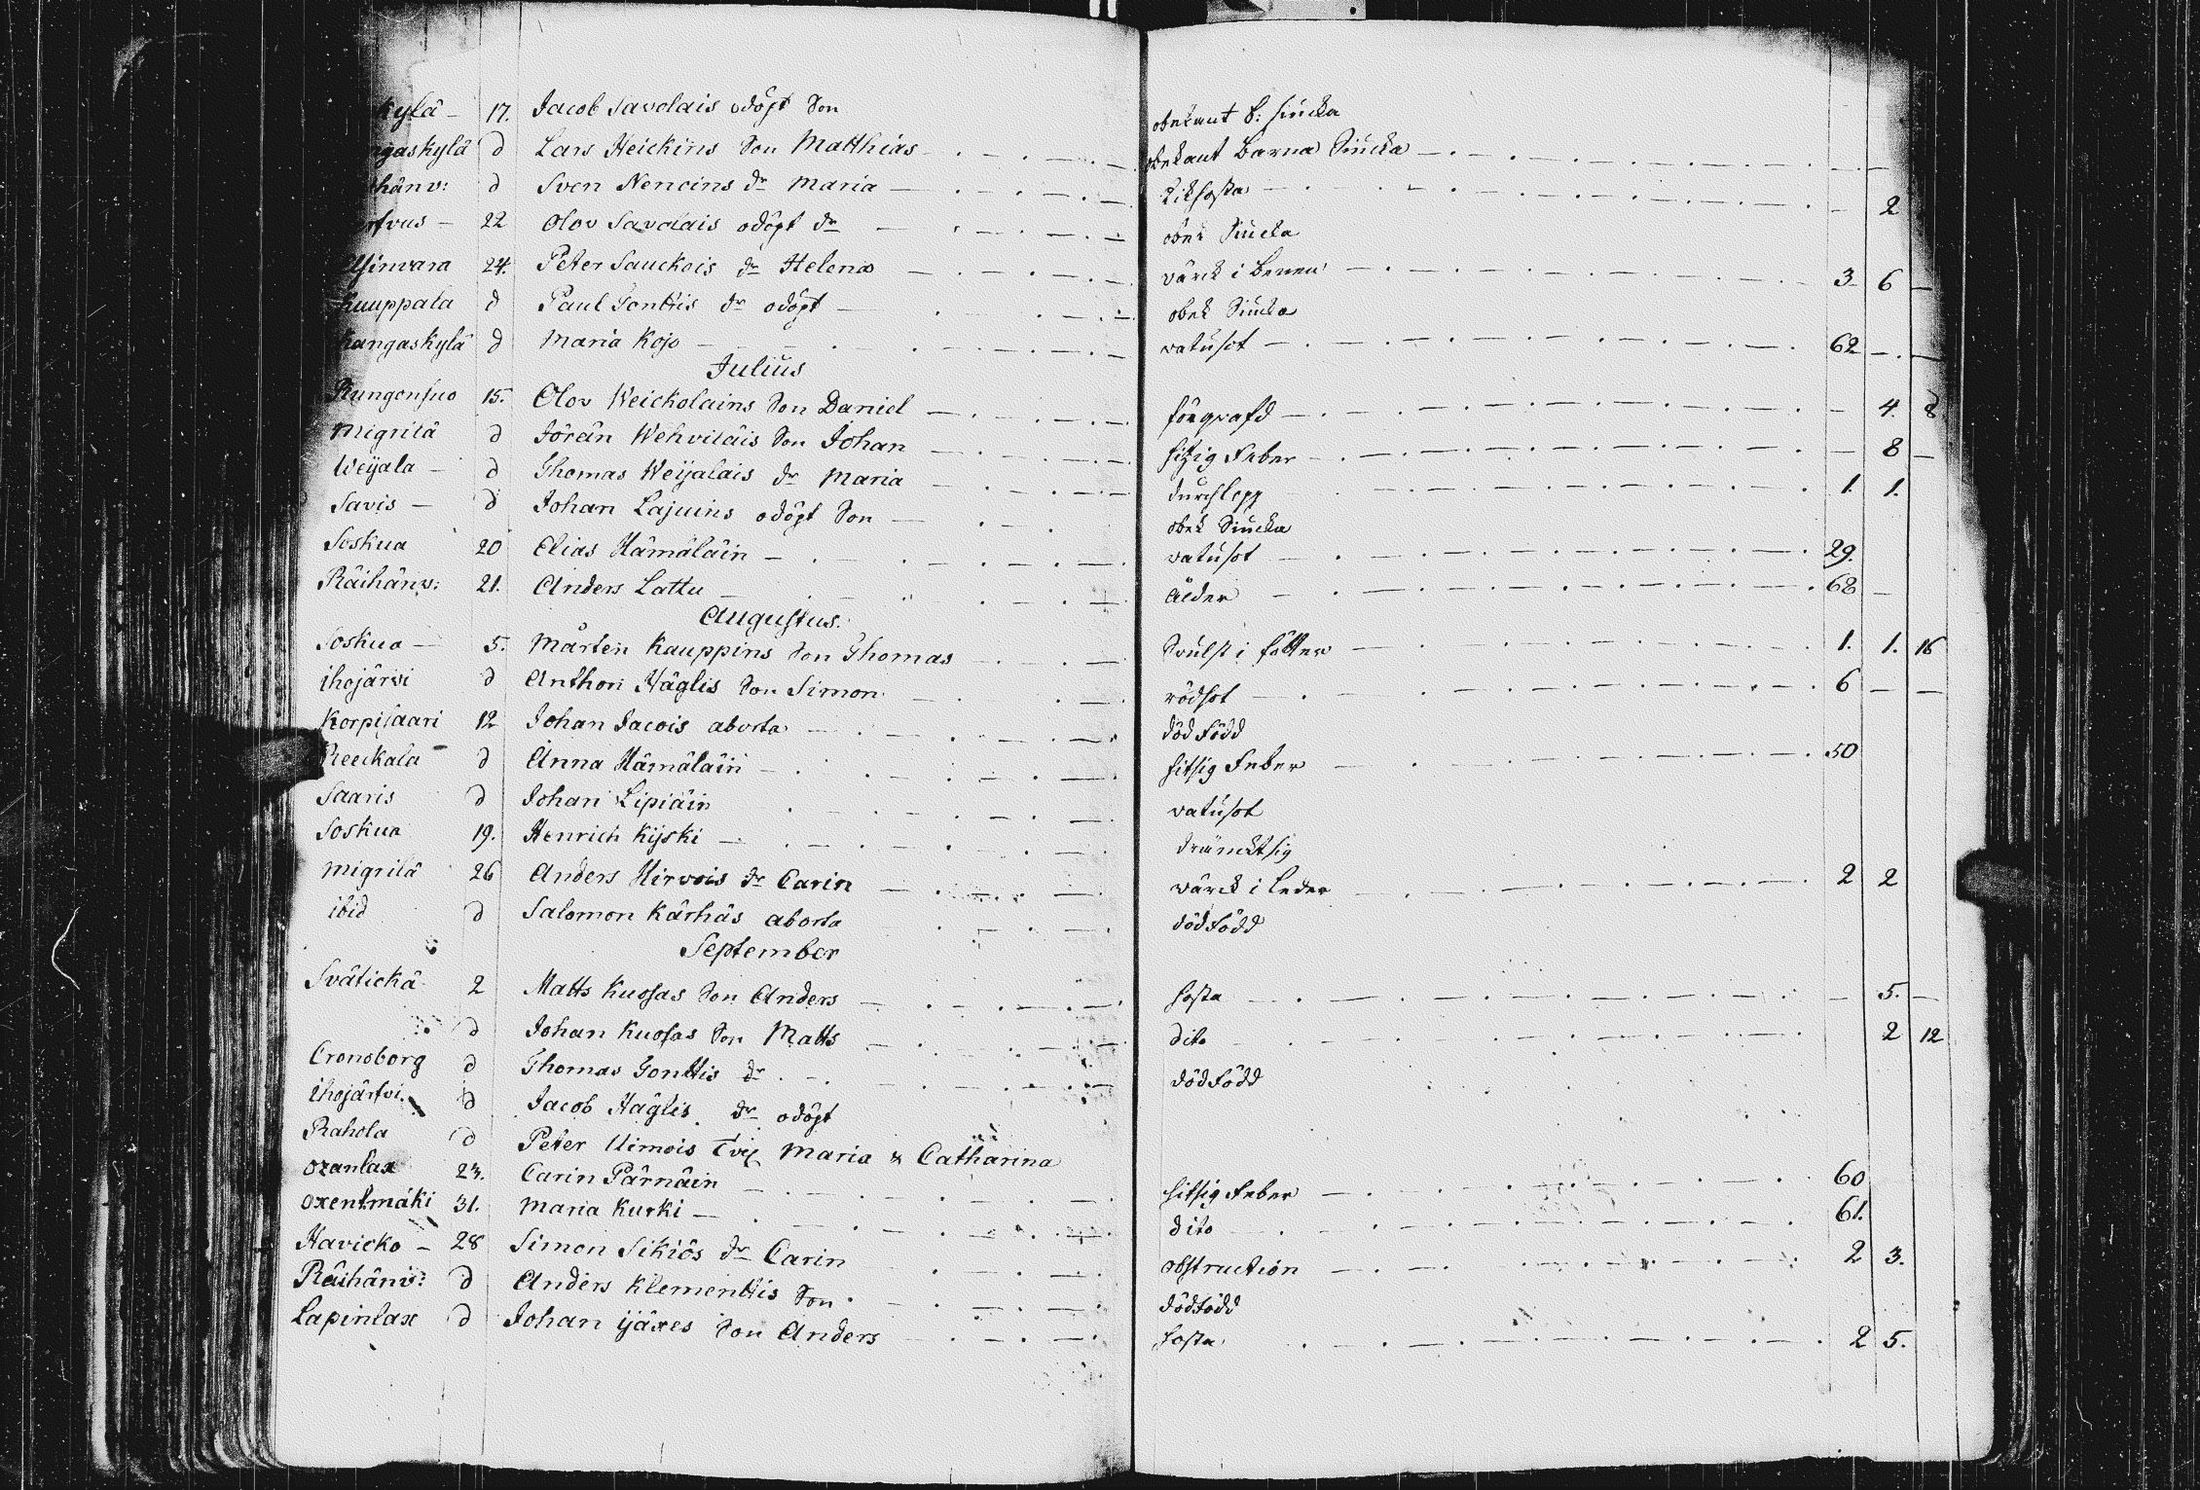 kylä – 17. Jacob Savolais odöpt Son obekant b: siucka
gaskylä d Lars Heickins Son Matthias obekant Barna Siucka
hänv: d Sven Nencins dr Maria kikhosta 2
22 Olov Savolais odöpt dr obek Siucka
24. Peter Sauckois dr Helena värck i benen 3 6 –
Kuuppala d Paul Tonttis dr odöpt obek Siucka
Kangaskylä d Maria Kojo vatusot 62 – –
Julius
Kungonsuo 15. Olov Weickolains Son Daniel – 4. 8
Migrilä d Jöran Wehviläis Son Johan hitzig Feber – 8 –
Weijala – d Thomas Weijalais dr Maria durchlopp 1. 1.
Savis – d Johan Lajuins odöpt Son obek Siucka
Soskua 20 Elias Hämäläin vatusot 29.
Räihänv: 21. Anders Lattu Ålder 68 –
Augustus.
Soskua 5. Mårten Kauppins Son Thomas Svulst i fötter 1. 1. 16
ihojärvi d Anthon Häglis Son Simon rödsot 6 – –
Korpisaari 12 Johan Jacois aborta dödfödd
Reeckala d Anna Hämäläin hitsig Feber 50
Saaris d Johan Lipiäin vatusot
Soskua 19. Henrich Kijski dränckt sig
Migrilä 26 Anders Hirvois dr Carin värck i leder 2 2
ibid d Salomon Kärhäs aborta dödfödd
September
Svätickä 2 Matts Kuosas Son Anders hosta – 5. –
d Johan Kuosas Son Matts dito 2 12
Cronoborg d Thomas Tonttis dr dödfödd
ihojärfvi d Jacob Häglis dr odöpt
Rahola d Peter Uimois Maria & Catharina
oxanlax 23. Carin Pärnäin hitsig Feber 60
oxentmäki 31. Maria Kurki dito 61.
Havicko – 28 Simon Sikiös dr Carin obstruction 2 3.
Räihänv: d Anders Klementtis Son dödfödd
Lapinlax d Johan ijäxes Son Anders hosta 2 5.